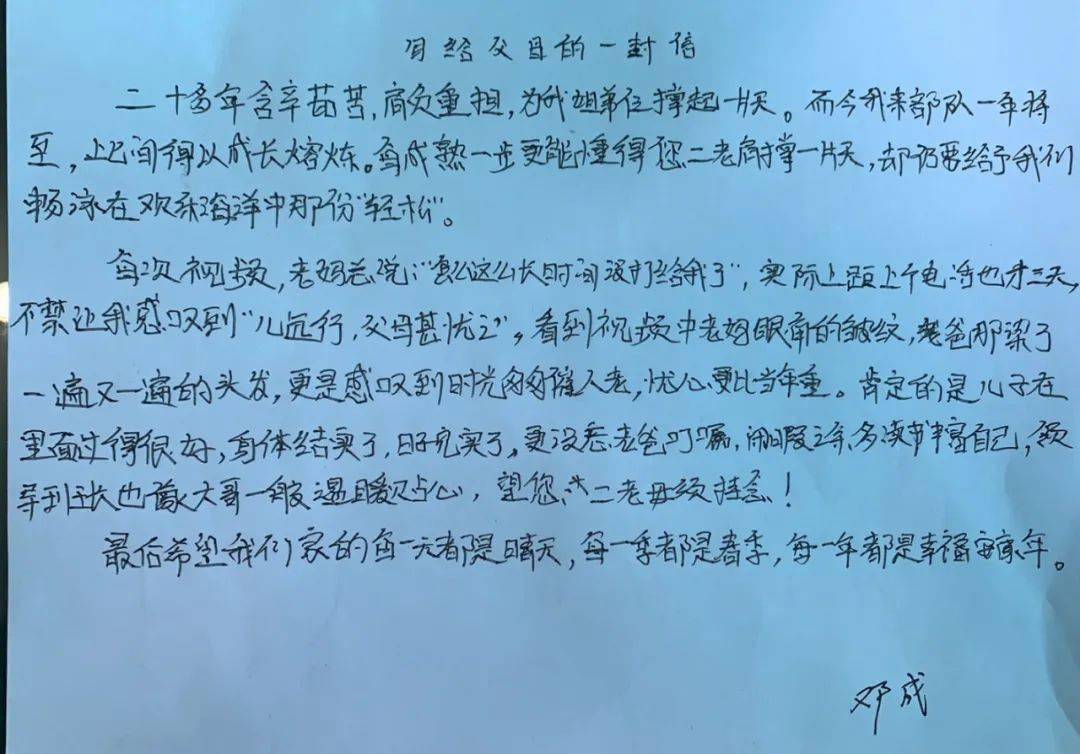 写给父母的一封信
二十多年含辛茹苦,肩负重担,为我姐弟仨撑起一片天。而今我来部队一年将
至,此间得以成长熔炼。每成熟一步更能懂得您二老肩撑一片天,却仍要给予我们
畅泳在欢乐海洋中那份“轻松”。
每次视频,老妈总说:“怎么这么长时间没打给我了”,实际上距上个电话也才三天,
不禁让我感叹到“儿远行,父母甚忧之”。看到视频中老妈眼角的皱纹,老爸那染了
一遍又一遍的头发,更是感叹到时光匆匆催人老,忧心更比当年重。肯定的是儿子在
里面过得很好,身体结实了,日子充实了,更没忘老爸叮嘱,闲暇之余,多读书丰富自己,领
导班长也像大哥一般温暖贴心,望您二老毋须挂念!
最后希望我们家的每一天都是晴天,每一季都是春季,每一年都是幸福安康年。
邓成